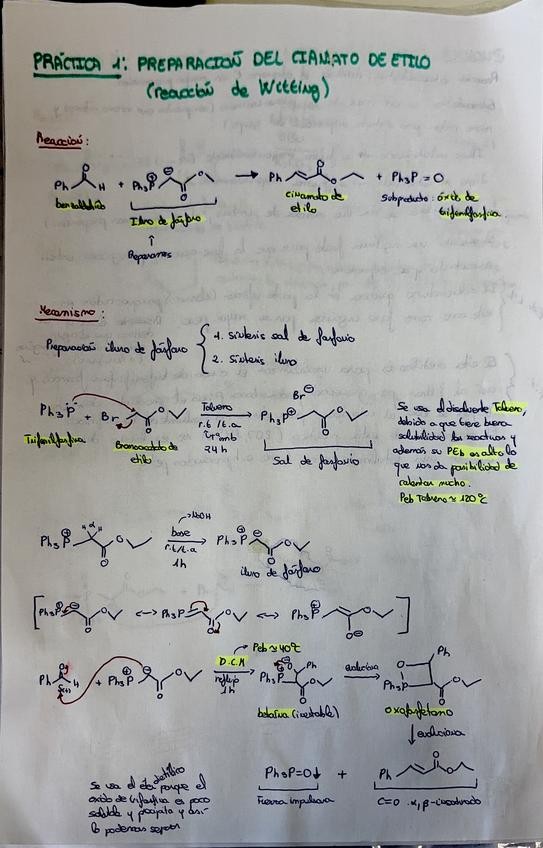 PRÁCTICA 1: PREPARACIÓN DEL CIANATO DE ETILO
(reacción de Witting)
Reacción:
Ph H + Ph₃P⊕ ⊖ O → Ph O O + Ph₃P=O
benzaldehído
Iluro de fósforo
cinamato de
etilo
Subproducto: óxido de
trifenilfosfina
↑
Preparamos
Mecanismo:
Preparación iluro de fósforo { 1. Síntesis sal de fosfonio
2. Síntesis iluro
Ph₃P + Br O O
Tolueno
r.t/t.a
24h
Ph₃P⊕ Br⊖ O O
Trifenilfosfina
Bromoacetato de
etilo
Sal de fosfonio
Se usa el disolvente Tolueno,
debido a que tiene buena
solubilidad los reactivos y
además su PEb es alto lo
que nos da posibilidad de
calentar mucho.
Peb Tolueno ≈ 120ºC
Ph₃P⊕ H H O O
→ NaOH
base
r.t/t.a
1h
Ph₃P⊕ ⊖ O O
iluro de fósforo
[ Ph₃P⊕ ⊖ O O ↔ Ph₃P O O ↔ Ph₃P⊕ O O⊖ ]
Ph O H + Ph₃P⊕ ⊖ O O
Peb ≈ 40ºC
D.C.M
reflujo
1h
Ph₃P⊕ ⊖O Ph O O
evoluciona
O Ph Ph₃P O O
betaína (inestable)
oxafosfetano
↓ evoluciona
Ph₃P=O↓ + Ph O O
Fuerza impulsora
C=O α,β-insaturado
Se usa el éter dietílico porque el
óxido de trifosfina es poco
soluble y precipita y así
lo podemos separar